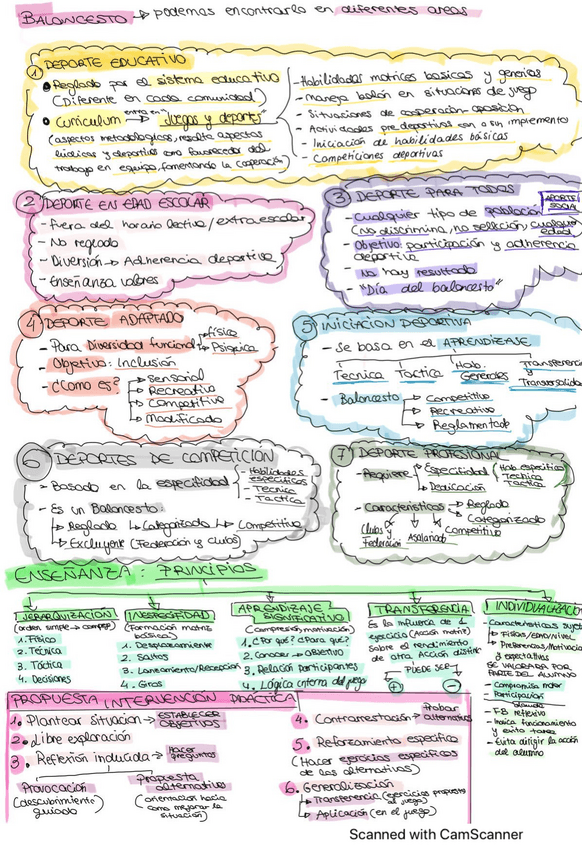 BALONCESTO → podemos encontrarlo en diferentes areas
1 DEPORTE EDUCATIVO
Reglado por el sistema educativo
(Diferente en cada comunidad)
Curriculum → Juegos y deportes"
(aspectos metodologicos, resalta aspectos
lúdicos y deportivos como favorecedor del
trabajo en equipo, fomentando la cooperación)
- Habilidades motrices basicas y genericas
- Manejo balón en situaciones de juego
- Situaciones de cooperación-oposición
- Actividades predeportivas con o sin implemento
- Iniciación de habilidades básicas
- Competiciones deportivas
2 DEPORTE EN EDAD ESCOLAR
- Fuera del horario lectivo/extraescolar
- No reglado
- Diversión → Adherencia deportiva
- Enseñanza valores
3 DEPORTE PARA TODOS
APORTE SOCIAL
- Cualquier tipo de población
(No discrimina, no selección, cualquier edad)
- Objetivo: participación y adherencia
deportiva
- No hay resultado
- "Día del baloncesto"
4 DEPORTE ADAPTADO
- Para Diversidad funcional → física
→ Psíquica
- Objetivo: Inclusión
- ¿Como es? → Sensorial
→ Recreativo
→ Competitivo
→ Modificado
5 INICIACION DEPORTIVA
- Se basa en el APRENDIZAJE
Tecnica Tactica Hab. Generales Transferencia y Transversalidad
- Baloncesto → Competitivo
→ Recreativo
→ Reglamentado
6 DEPORTES DE COMPETICION
- Basado en la especificidad
- Habilidades específicas
- Tecnica
- Tactica
- Es un Baloncesto:
→ Reglado → Categorizado → Competitivo
→ Excluyente (Federación y clubs)
7 DEPORTE PROFESIONAL
- Requiere → Especificidad (Hab. especificas
Técnica
Tactica
→ Dedicación
- Caracteristicas → Reglado
Categorizado
Competitivo
Clubs y Federación Asalariado
ENSEÑANZA: PRINCIPIOS
JERARQUIZACION
(orden simple → complejo)
1. Físico
2. Técnica
3. Táctica
4. Decisiones
INESPECIFIDAD
(Formación motriz
básica)
1. Desplazamiento
2. Saltos
3. Lanzamiento/Recepcion
4. Giros
APRENDIZAJE
SIGNIFICATIVO
(Compresión, motivación)
1. ¿Por qué? ¿Para qué?
2. Conocer → objetivo
3. Relación participantes
4. Lógica interna del juego
TRANSFERENCIA
Es la influencia de 1
ejercicio (Acción motriz)
Sobre el rendimiento
de otra. Acción distinta
PUEDE SER
+ -
INDIVIDUALIZACION
- Caracteristicas sujeto
→ FISICAS/EDAD/NIVEL
→ Preferencias/Motivacion
y expectativas
SE VALORARA POR
PARTE DEL ALUMNO
- Compromiso motor
- Participación
- F.B reflexivo
- Indica funcionamiento
y evita tarea
- Evita dirigir la acción
del alumno
PROPUESTA INTERVENCION DIDACTICA
1. Plantear situacion → ESTABLECER OBJETIVOS
2. Libre exploración
3. Reflexión inducida → Hacer preguntas
Provocación
(descubrimiento)
guiado
Propuesta
alternativas
(orientación hacia
como mejorar la
situación)
4. Contrarestación → Probar alternativas
5. Reforzamiento especifico
(Hacer ejercicios específicos
de las alternativas)
6. Generalización
→ Transferencia (ejercicios propuestos al juego)
→ Aplicación (en el juego)
Scanned with CamScanner